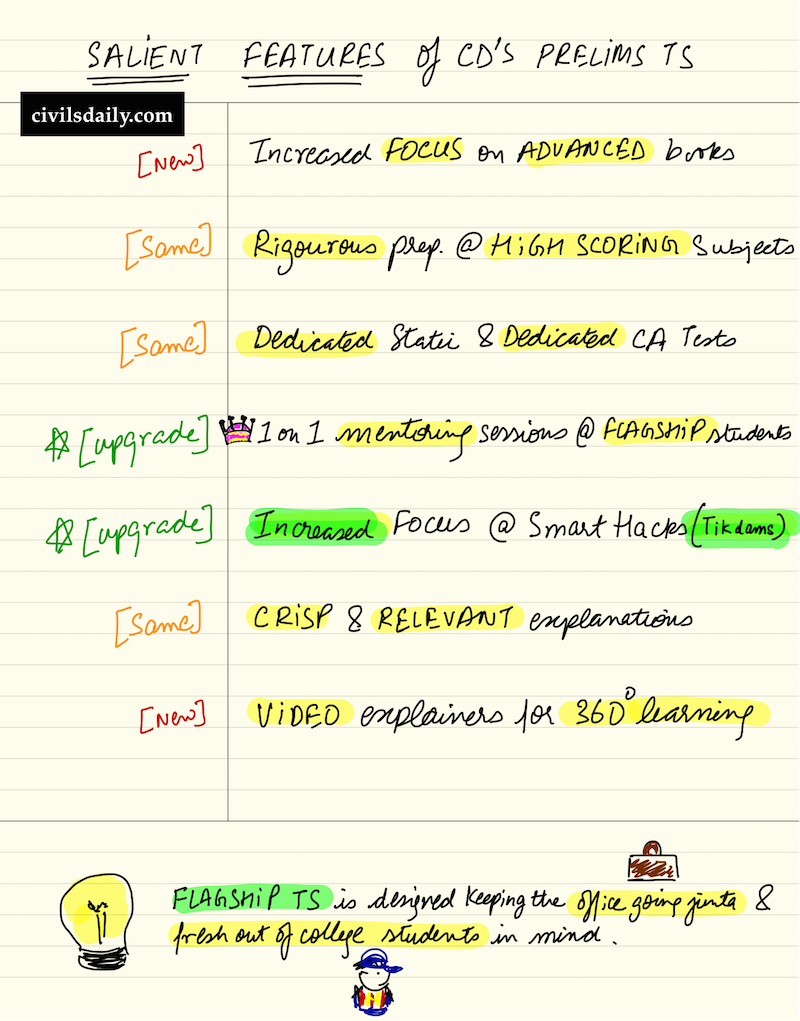 SALIENT FEATURES of CD'S PRELIMS TS
civilsdaily.com
[New] Increased FOCUS on ADVANCED books
[Same] Rigourous prep. @ HIGH SCORING Subjects
[Same] Dedicated Static & Dedicated CA Tests
[upgrade] 1 on 1 mentoring sessions @ FLAGSHIP students
[upgrade] Increased Focus @ Smart Hacks (Tikdams)
[Same] CRISP & RELEVANT explanations
[New] VIDEO explainers for 360° learning
FLAGSHIP TS is designed keeping the office going junta &
fresh out of college students in mind.